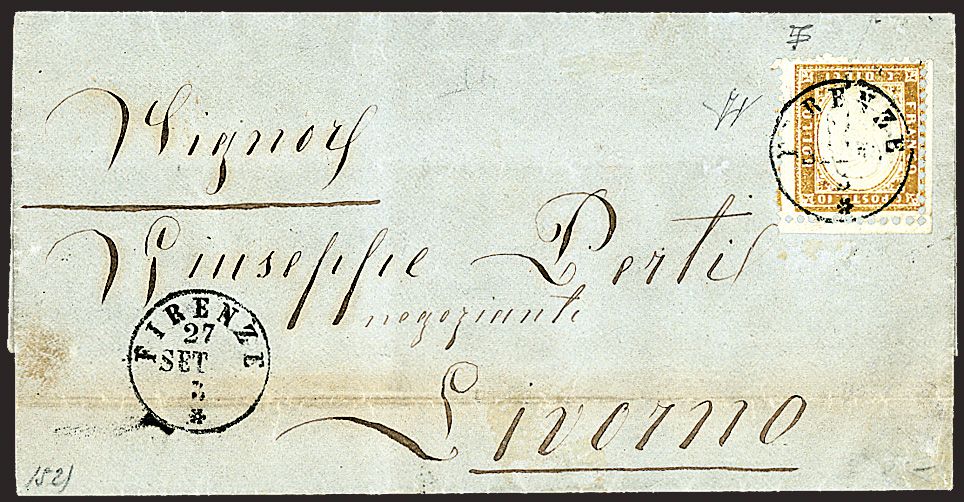 Signor
Giuseppe Perti
negoziante
Livorno
FIRENZE
27
SET
3
FIRENZE
FRANCO
C. POSTE 10
152)